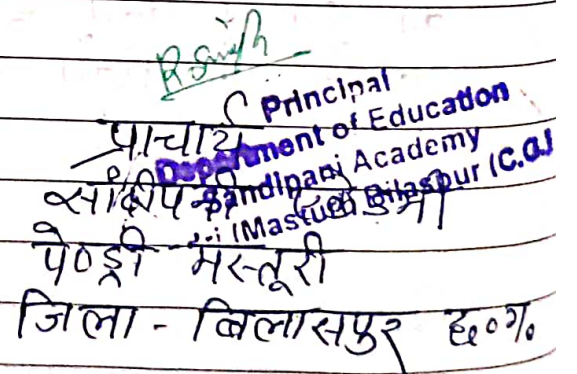 R Singh
Principal
Department of Education
Sandipani Academy
(Masturi) Bilaspur (C.G.)
प्राचार्य
सांदीपनी एकेडमी
पेण्ड्री मस्तूरी
जिला - बिलासपुर छ०ग०